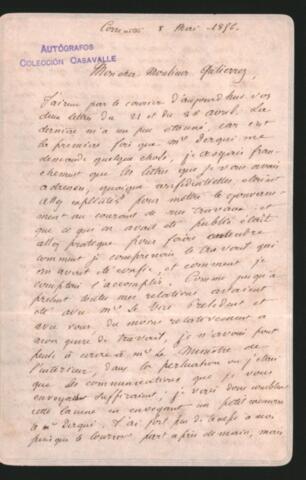 Corrientes 8 Mai 1856.
AUTÓGRAFOS
COLECCIÓN CASAVALLE
Mon cher Monsieur Gutierrez,
J'ai reçu par le courrier d'aujourd'hui vos
deux lettres du 21 et du 30 avril. La
dernière m'a un peu étonné, car c'est
la première fois que Mr Derqui me
demande quelque chose, je croyais fran-
chement que les lettres que je vous avais
adressées, quoique confidentielles étaient
assez explicites pour mettre le gouverne-
ment au courant de mes travaux et
que ce qui en avait été publié était
assez pratique pour faire
comment je comprenais le travail qui
m'avait été confié, et comment je
comptais l'accomplir. Comme jusqu'à
présent toutes mes relations avaient
été avec Mr le Vice Président et
avec vous, du moins relativement à
mon genre de travail, je n'avais point
pensé à écrire à Mr le Ministre de
l'intérieur, dans la persuasion où j'étais
que les communications que je vous
envoyais suffiraient; je vais donc combler
cette lacune en envoyant un petit
à Mr Derqui. J'ai fort peu de temps à moi
puisque le courrier part après demain, mais